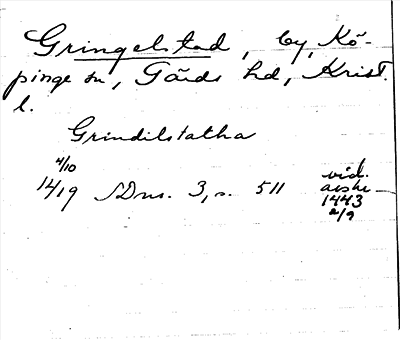 Gringelstad, by, Kö-
pinge sn, Gärds hd, Krist.
l.
Grindilstatha
4/10
1419 SDns. 3, s. 511
vid.
avskr.
1443
2/9